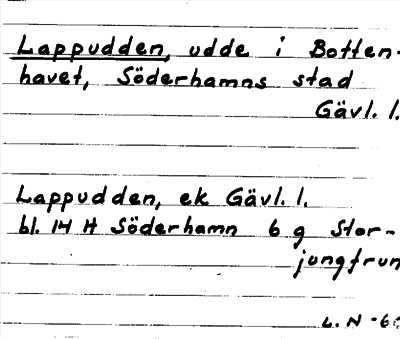 Lappudden, udde i Botten-
havet, Söderhamns stad
Gävl. l.
Lappudden, ek Gävl. l.
bl. 14 H Söderhamn 6 g Stor-
jungfrun
L. N -6